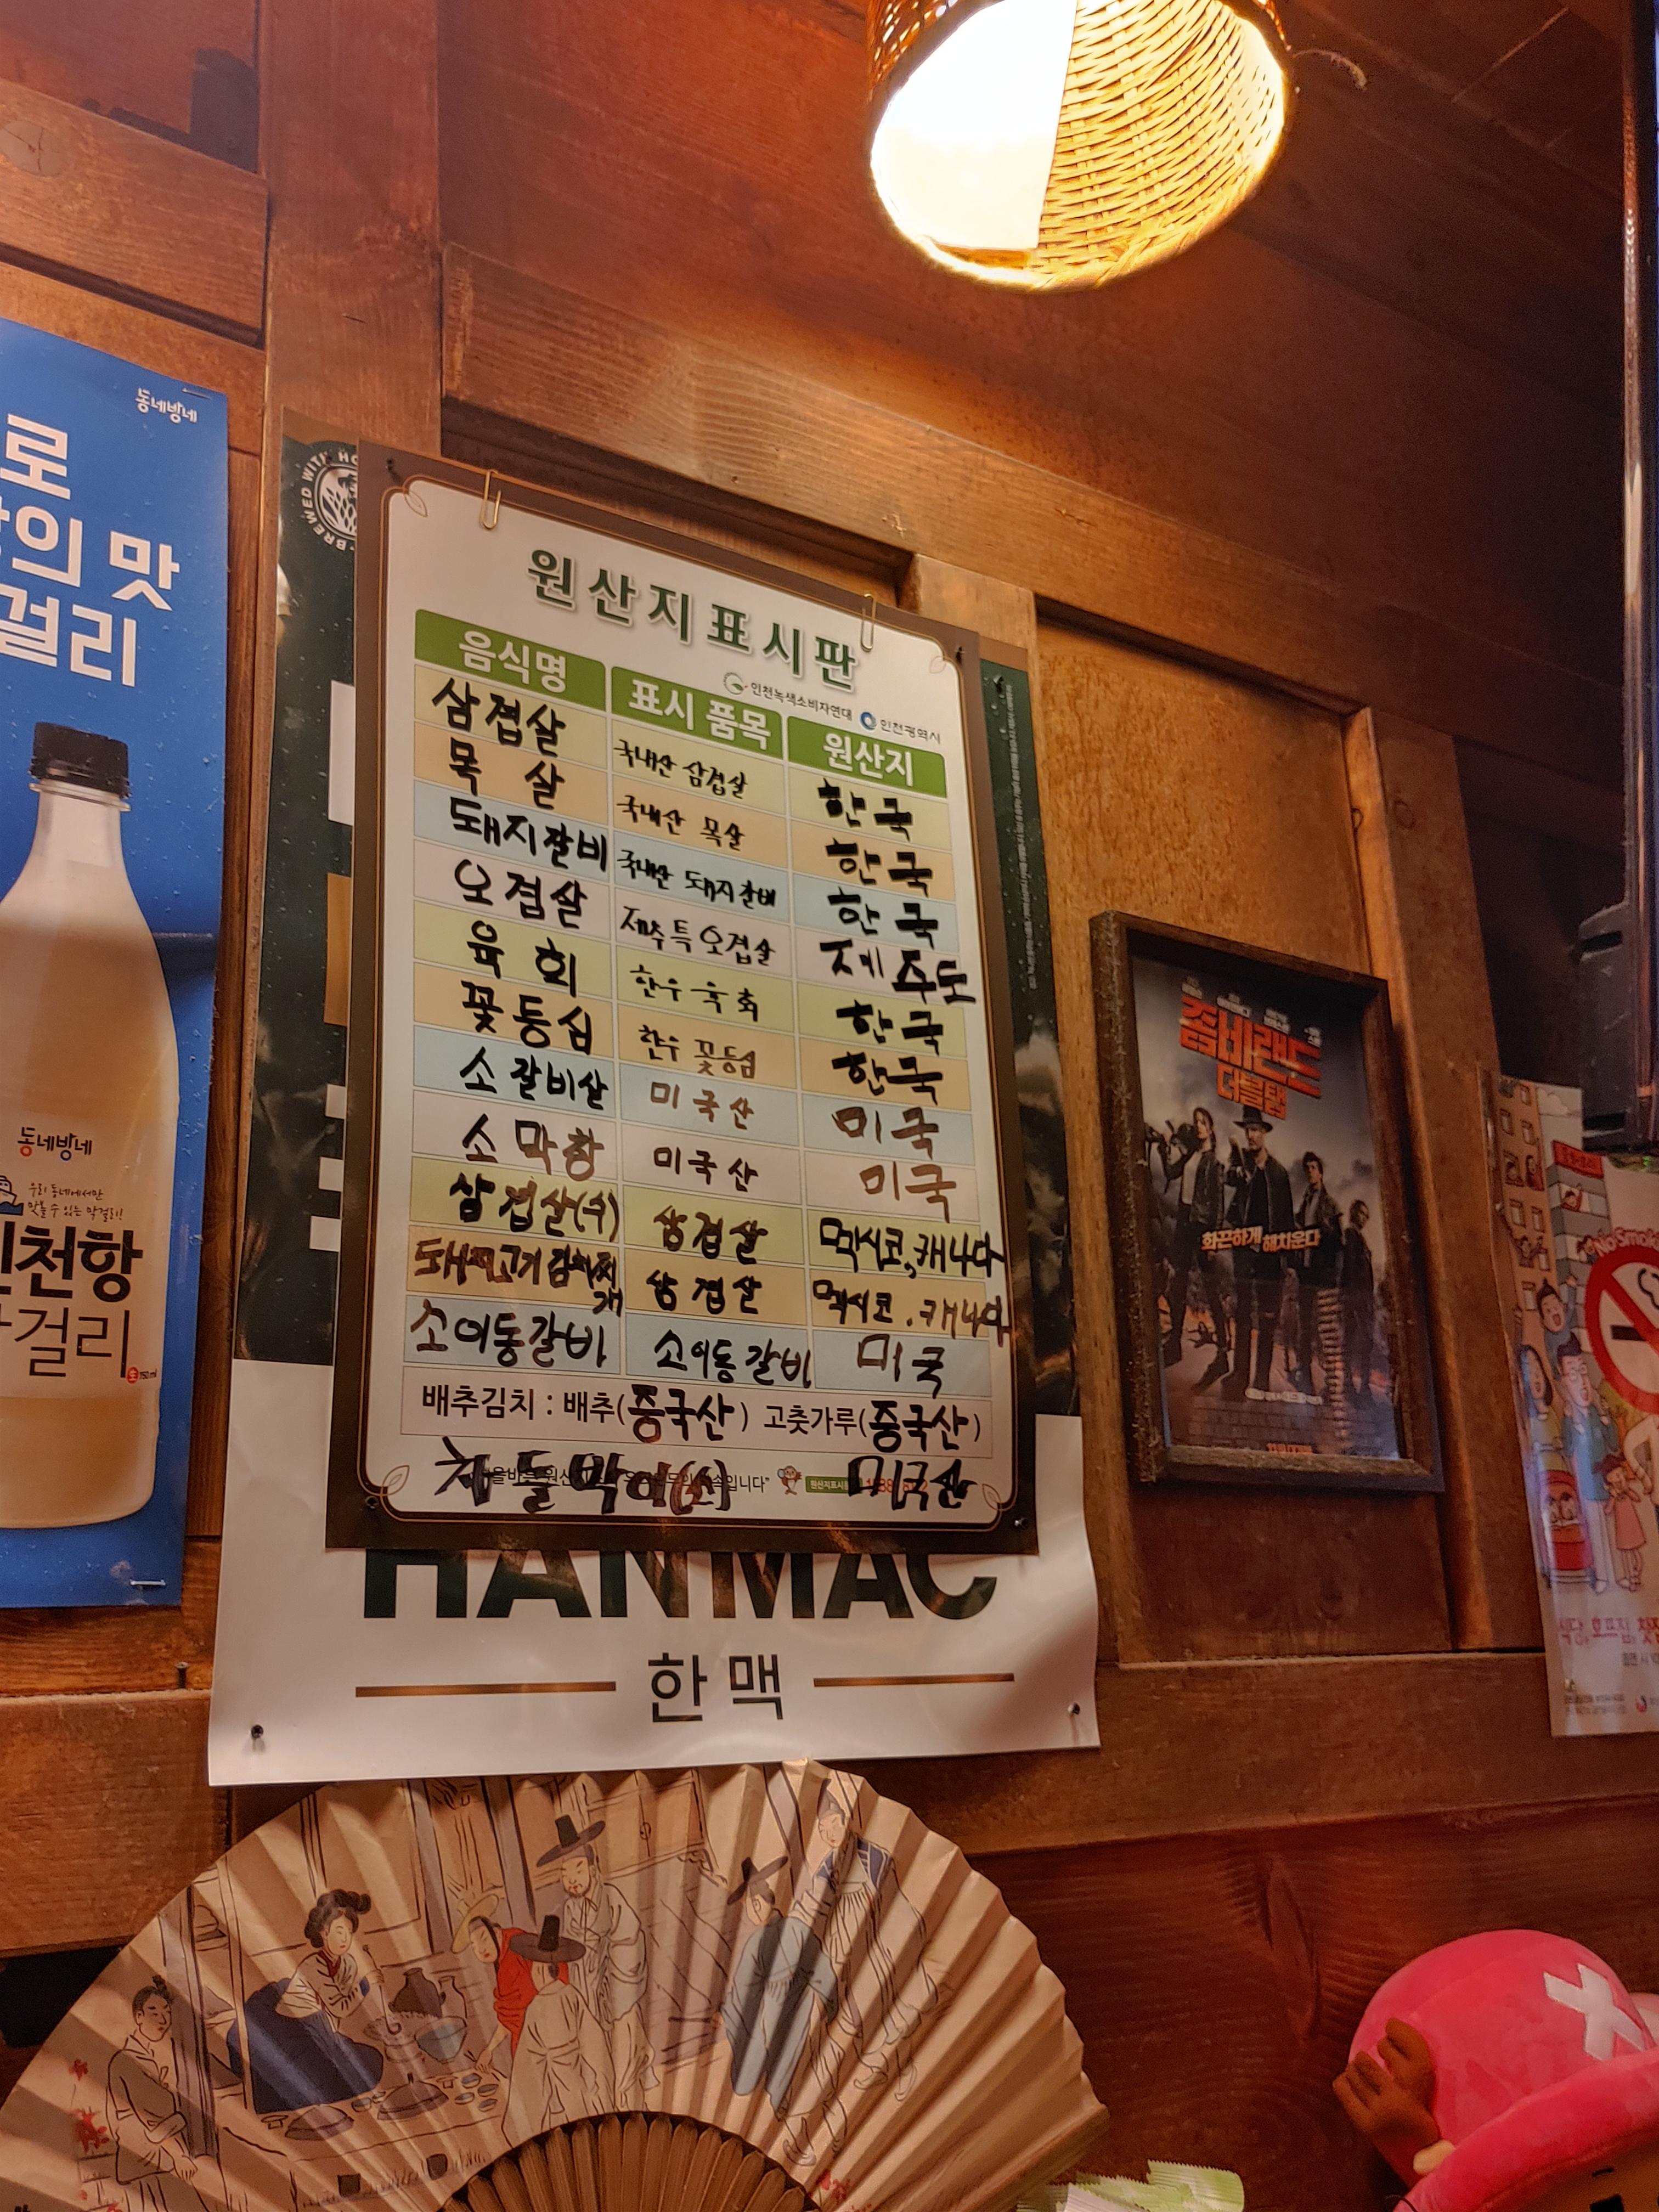 동네방네
로
의 맛
걸리
동네방네
우리 동네에서만
맛볼 수 있는 막걸리!
천항
걸리
750ml
BREWED WITH
원산지표시판
인천녹색소비자연대 인천광역시
음식명 표시 품목 원산지
삼겹살 국내산 삼겹살 한국
목살 국내산 목살 한국
돼지갈비 국내산 돼지갈비 한국
오겹살 제주특오겹살 제주도
육회 한우 육회 한국
꽃등심 한우 꽃등심 한국
소갈비살 미국산 미국
소막창 미국산 미국
삼겹살(수) 삼겹살 멕시코,캐나다
돼지고기김치찌개 삼겹살 멕시코.캐나다
소이동갈비 소이동갈비 미국
배추김치 : 배추(중국산) 고춧가루(중국산)
차돌박이(소) 미국산
HANMAC
한맥
좀비랜드
더블 탭
화끈하게 해치운다
No Smoking
식당, 호프집,